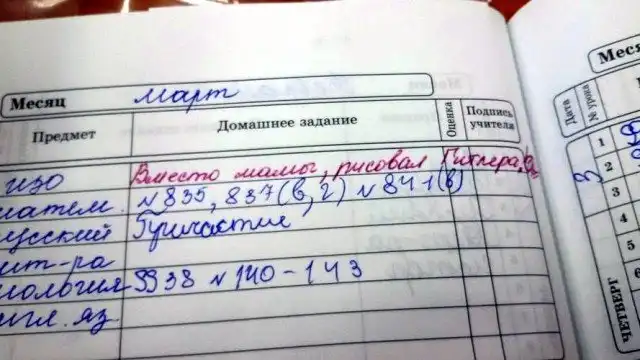 Месяц март
Предмет Домашнее задание Оценка Подпись учителя
изо Вместо мамы, рисовал Гитлера,
матем. №835, 837(в,г) №841(в)
русский Причастие
лит-ра
иология §§38 №140-143
нгл. яз
Меся
Дата № урока
1
2
3
3
4
5
6
ЧЕТВЕРГ